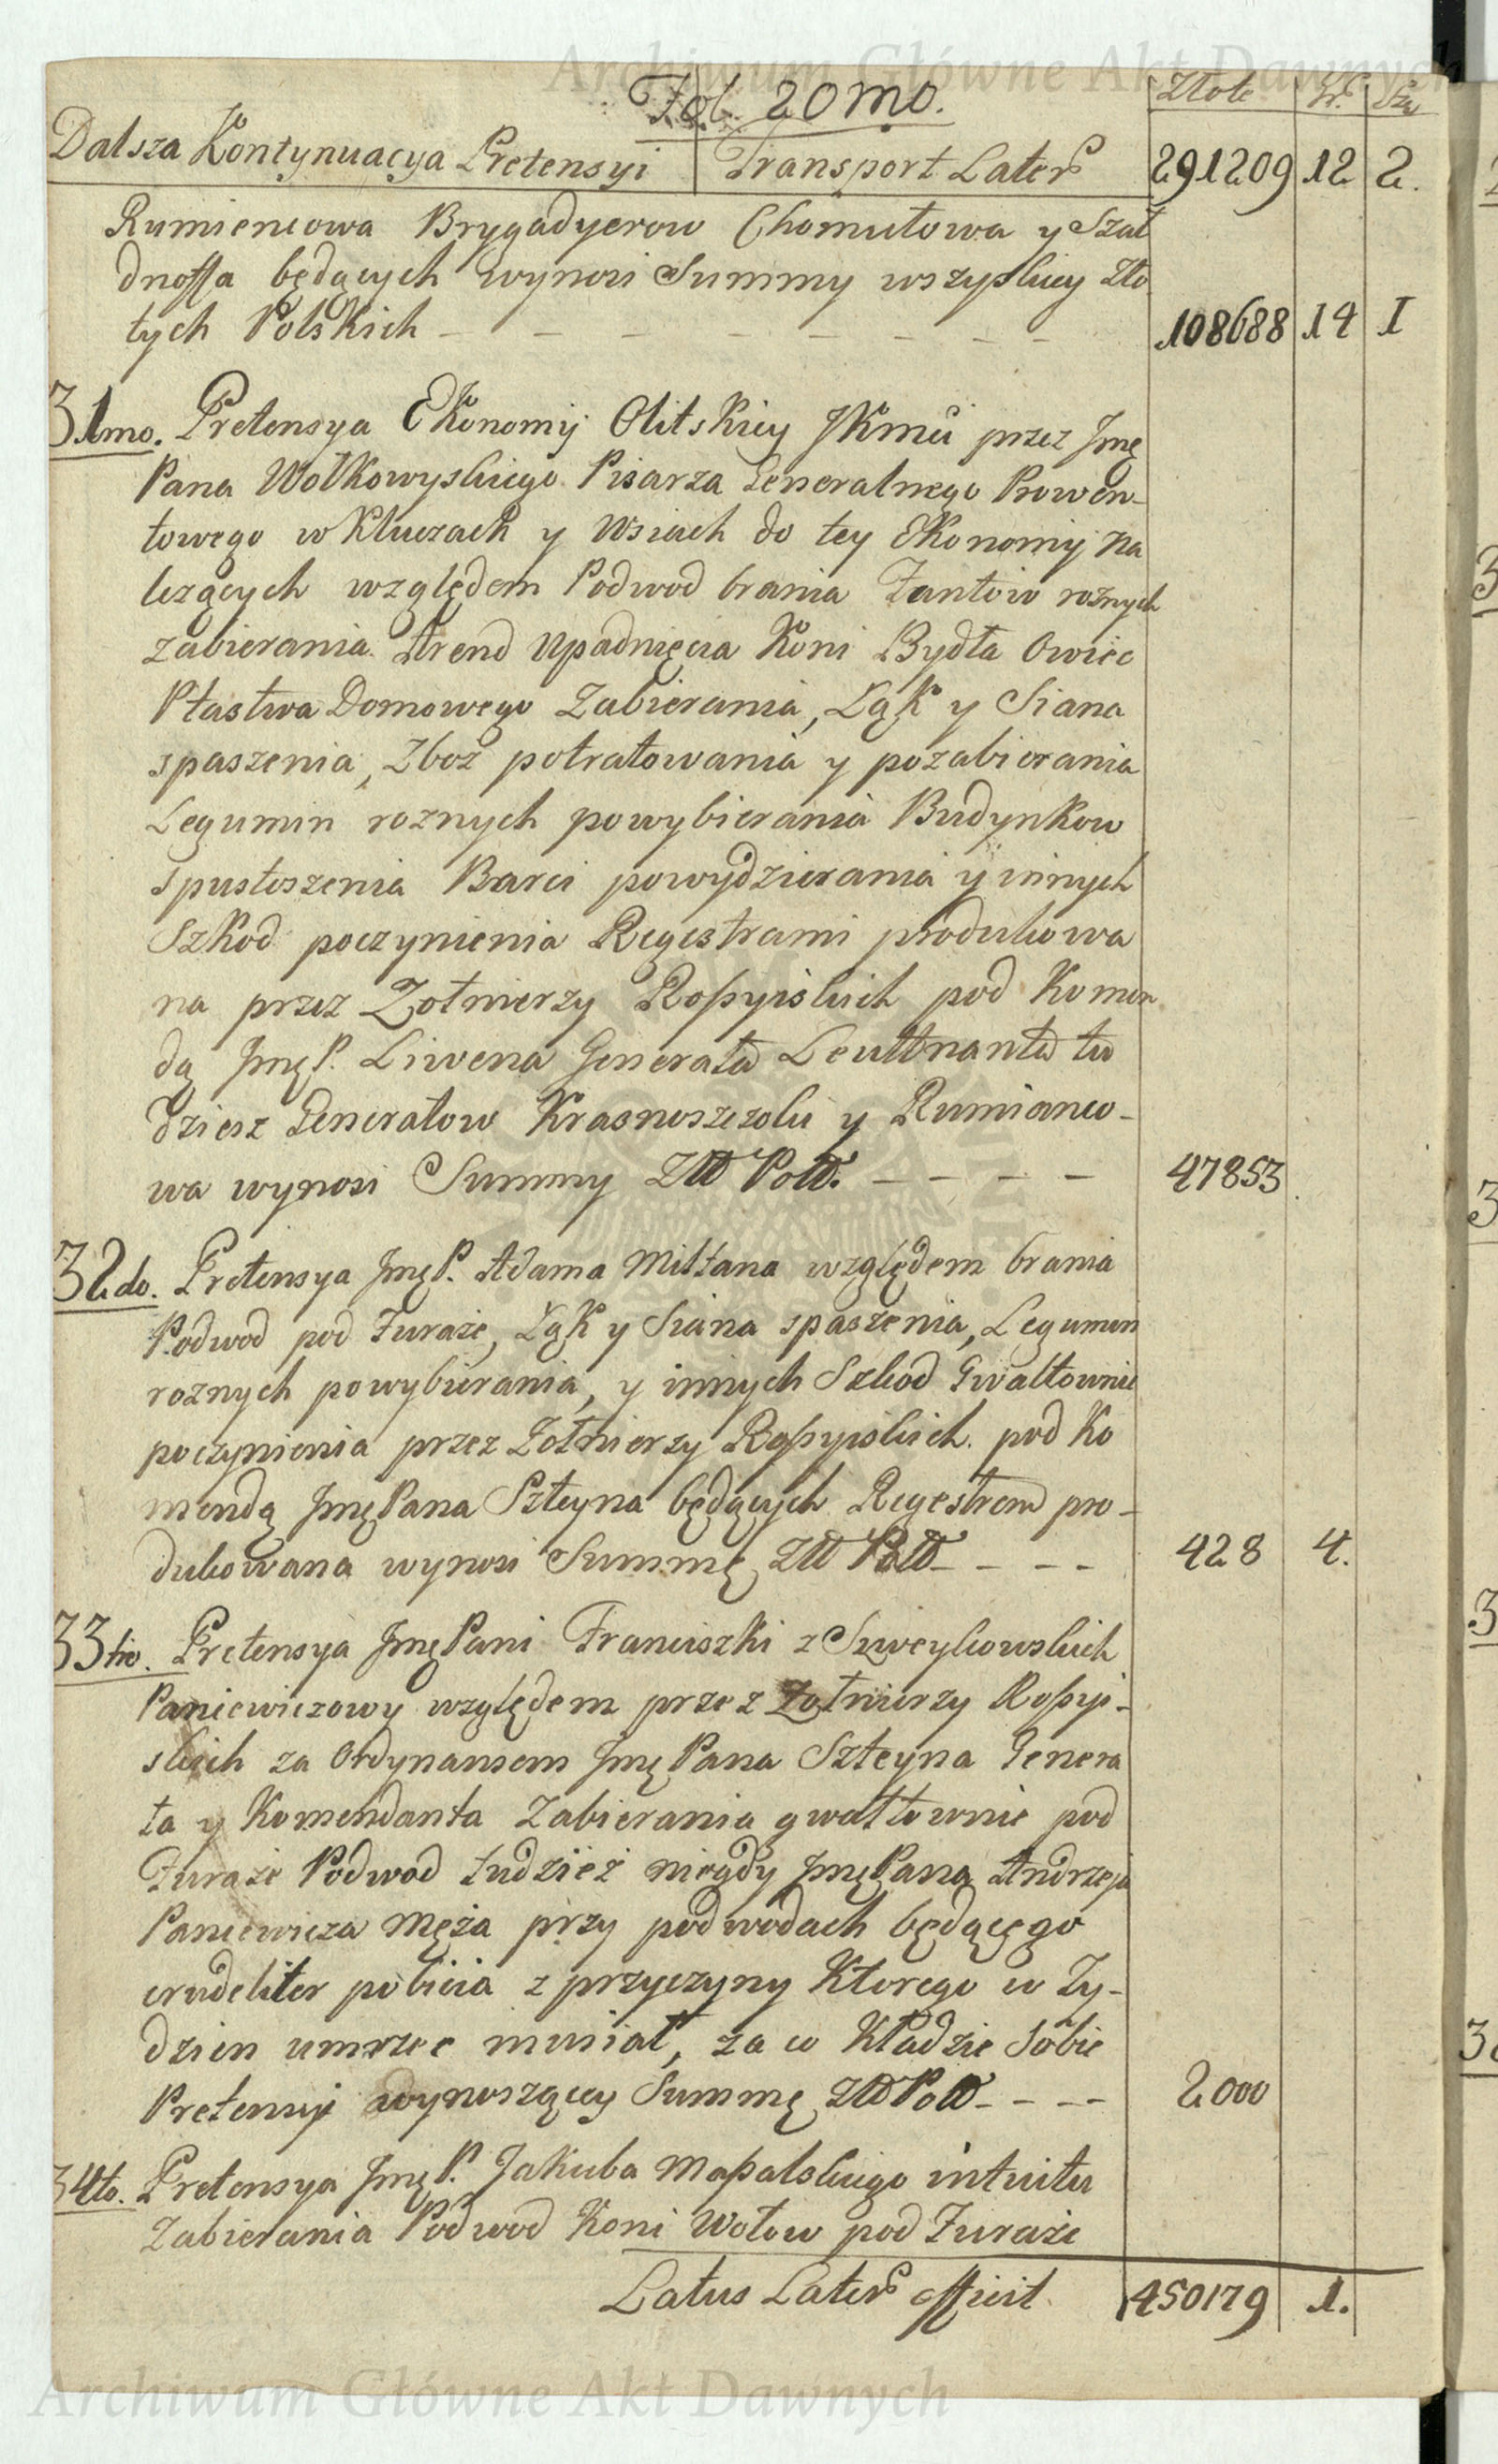 Archiwum Główne Akt Dawnych
Fol. 20mo.
Złote Gr. Sze
Dalsza Kontynuacya Pretensyi Transport Laterū 291209 12 2.
Rumiencowa Brygadyerow Chomutowa y Szał
dnossa będących wynosi Summy wszystkiey Zło
tych Polskich 108688 14 1
31mo. Pretensya Ekonomij Olitskiey JKmći przez Jmę
Pana Wołkowyskiego Pisarza Generalnego Prowen-
towego w Kluczach y Wsiach do tey Ekonomij Na
lezących względem Podwod brania Fantow roznych
zabierania Arend Upadnięcia Koni Bydła Owiec
Ptastwa Domowego Zabierania, Łąk y Siana
spaszenia, Zboz potratowania y pozabierania
Legumin roznych powybierania Budynkow
spustoszenia Barci powydzierania y innych
Szkod poczynienia Regestrami produkowa
na przez Zołnierzy Rossyiskich pod Komen
dą JmęP. Liwena Generała Leuttnanta tu
dziesz Generałow Krasnoszczoki y Rumianco-
wa wynosi Summy Złł Poll. 47853
32do. Pretensya JmęP. Adama Miłłana względem brania
Podwod pod Furaże, Łąk y Siana spaszenia, Legumin
roznych powybierania, y innych Szkod Gwałtownie
poczynienia przez Zołnierzy Rossyiskich pod Ko
mendą JmęPana Szteyna będących Regestrem pro-
dukowana wynosi Summę Złł Poll 428 4.
33tio. Pretensya JmęPani Franciszki z Szweykowskich
Paniewiczowy względem przez Zołnierzy Rossyi-
skich za Ordynansem JmęPana Szteyna Genera
ła y Komendanta Zabierania gwałtownie pod
Furaże Podwod tudzież niegdy JmęPana Andrzeja
Paniewicza Męża przy podwodach będącego
crudeliter pobicia z przyczyny Ktorego w Ty-
dzien umrzec musiał, za co Kładzie Sobie
Pretensyi wynoszącey Summę Złł Poll 2000
34to. Pretensya JmęP. Jakuba Massalskiego intuitu
Zabierania Podwod Koni Wołow pod Furaże
Latus Laterū efficit 450179 1.
Archiwum Główne Akt Dawnych